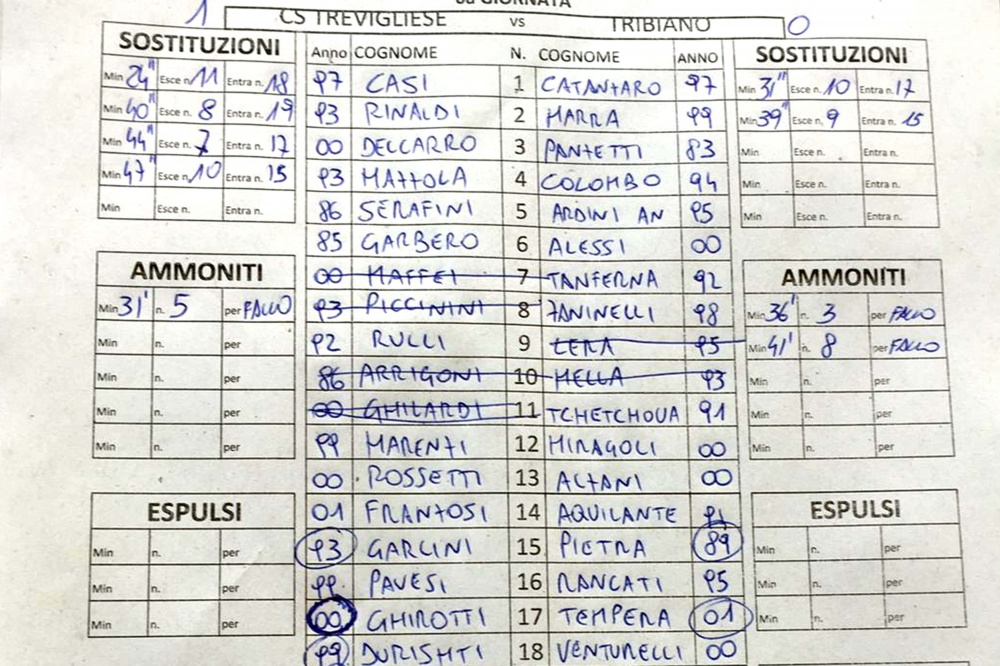 8a GIORNATA
1 CS TREVIGLIESE vs TRIBIANO 0
SOSTITUZIONI
Min 24" Esce n. 11 Entra n. 18
Min 40" Esce n. 8 Entra n. 19
Min 44" Esce n. 7 Entra n. 17
Min 47 Esce n. 10 Entra n. 15
Min Esce n. Entra n.
AMMONITI
Min 31' n. 5 per FALLO
Min n. per
Min n. per
Min n. per
Min n. per
ESPULSI
Min n. per
Min n. per
Min n. per
Anno COGNOME N. COGNOME ANNO
97 CASI 1 CATANZARO 97
93 RINALDI 2 MARRA 99
00 DELCARRO 3 PANZETTI 83
93 MAZZOLA 4 COLOMBO 94
86 SERAFINI 5 ARDINI AN 95
85 GARBERO 6 ALESSI 00
00 MAFFEI 7 TANFERNA 92
93 PICCININI 8 ZANINELLI 98
92 RULLI 9 LERA 95
86 ARRIGONI 10 MELLA 93
00 GHILARDI 11 TCHETCHOUA 91
99 MARENZI 12 MIRAGOLI 00
00 ROSSETTI 13 ALZANI 00
01 FRANZOSI 14 AQUILANTE 91
93 GARCINI 15 PIETRA 89
99 PAVESI 16 RANCATI 95
00 GHIROTTI 17 TEMPERA 01
99 DURISHTI 18 VENTURELLI 00
SOSTITUZIONI
Min 31" Esce n. 10 Entra n. 17
Min 39" Esce n. 9 Entra n. 15
Min Esce n. Entra n.
Min Esce n. Entra n.
Min Esce n. Entra n.
AMMONITI
Min 36' n. 3 per FALLO
Min 41' n. 8 per FALLO
Min n. per
Min n. per
Min n. per
ESPULSI
Min n. per
Min n. per
Min n. per